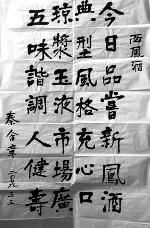 西鳳酒
今日品嘗新鳳酒
典型風格充心口
琼漿玉液市場廣
五味諧調人健壽
秦含章